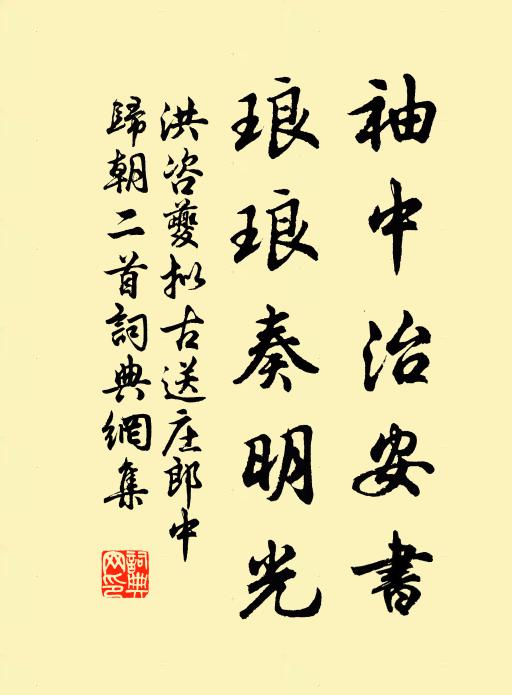 袖中治安書
琅琅奏明光
洪咨夔拟古送庄郎中
歸朝二首詞典網集
詞典网印